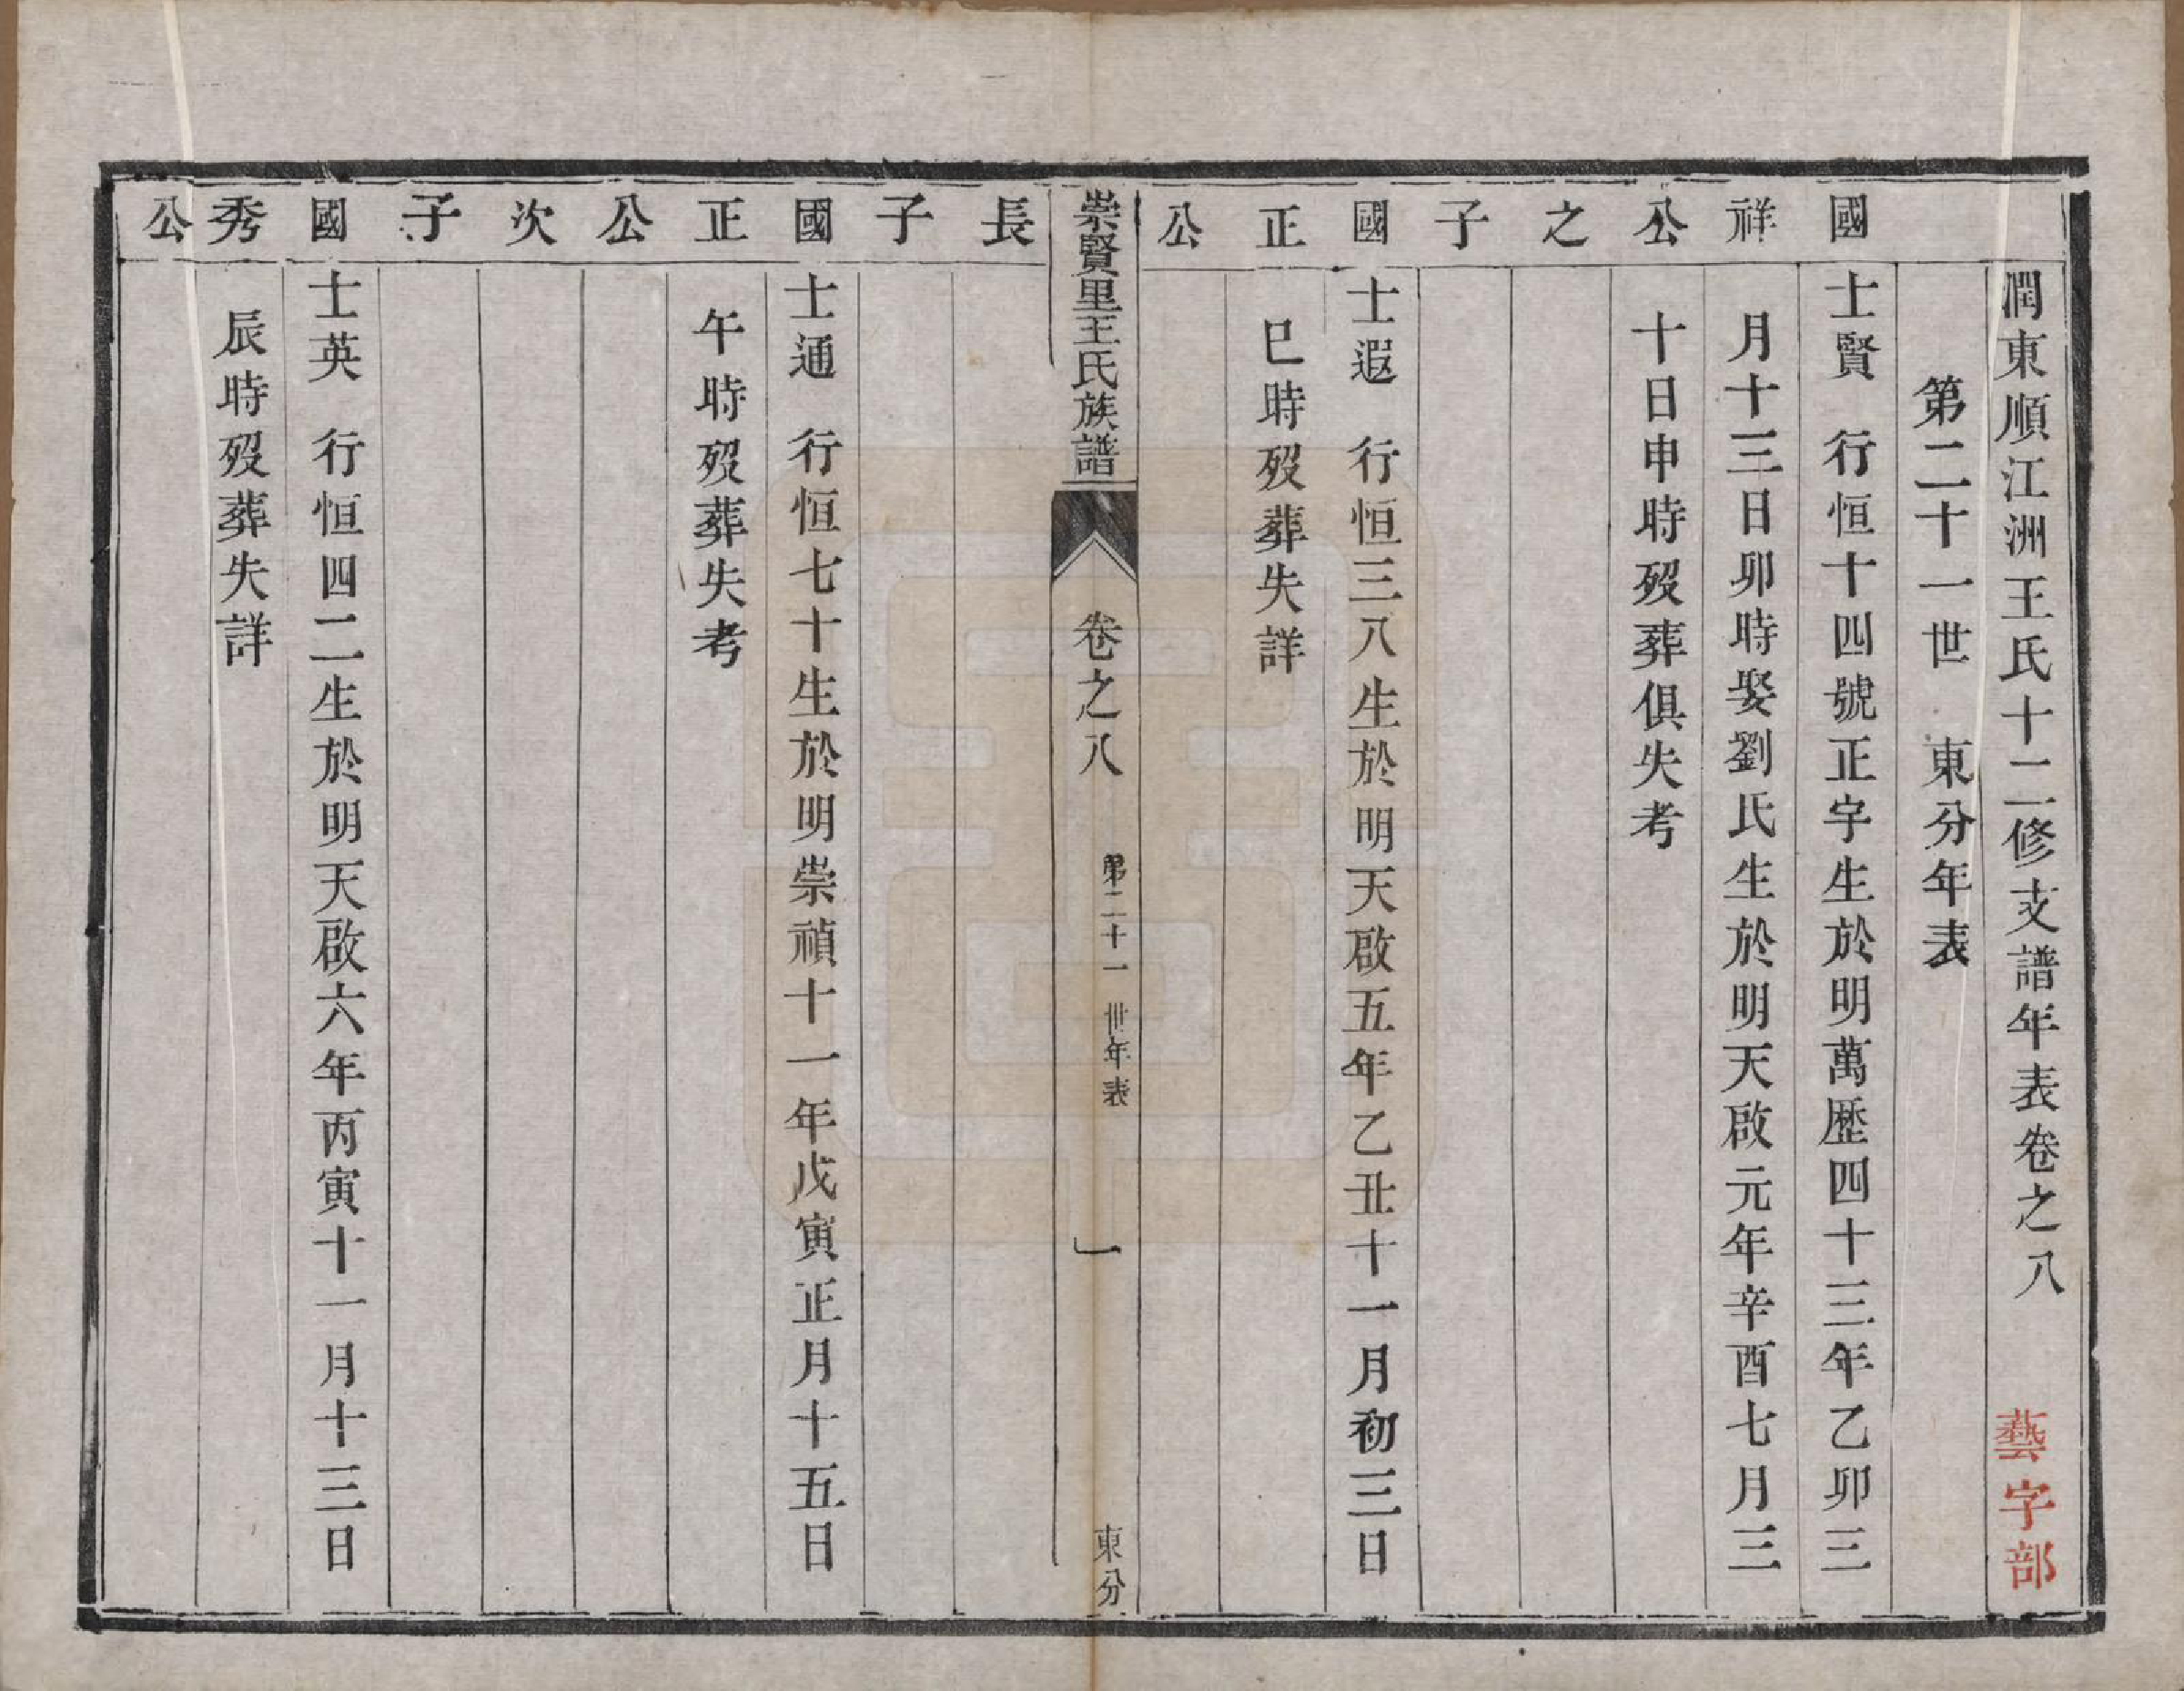 潤東順江洲王氏十二修支譜年表卷之八 藝字部
第二十一世 東分年表
國 士賢 行恒十四號正字生於明萬歷四十三年乙卯三
祥 月十三日卯時娶劉氏生於明天啟元年辛酉七月三
公 十日申時歿葬俱失考
之
子
國 士遐 行恒三八生於明天啟五年乙丑十一月初三日
正 巳時歿葬失詳
公
崇賢里王氏族譜 卷之八 第二十一世年表 一 東分
長
子
國 士通 行恒七十生於明崇禎十一年戊寅正月十五日
正 午時歿葬失考
公
次
子
國 士英 行恒四二生於明天啟六年丙寅十一月十三日
秀 辰時歿葬失詳
公